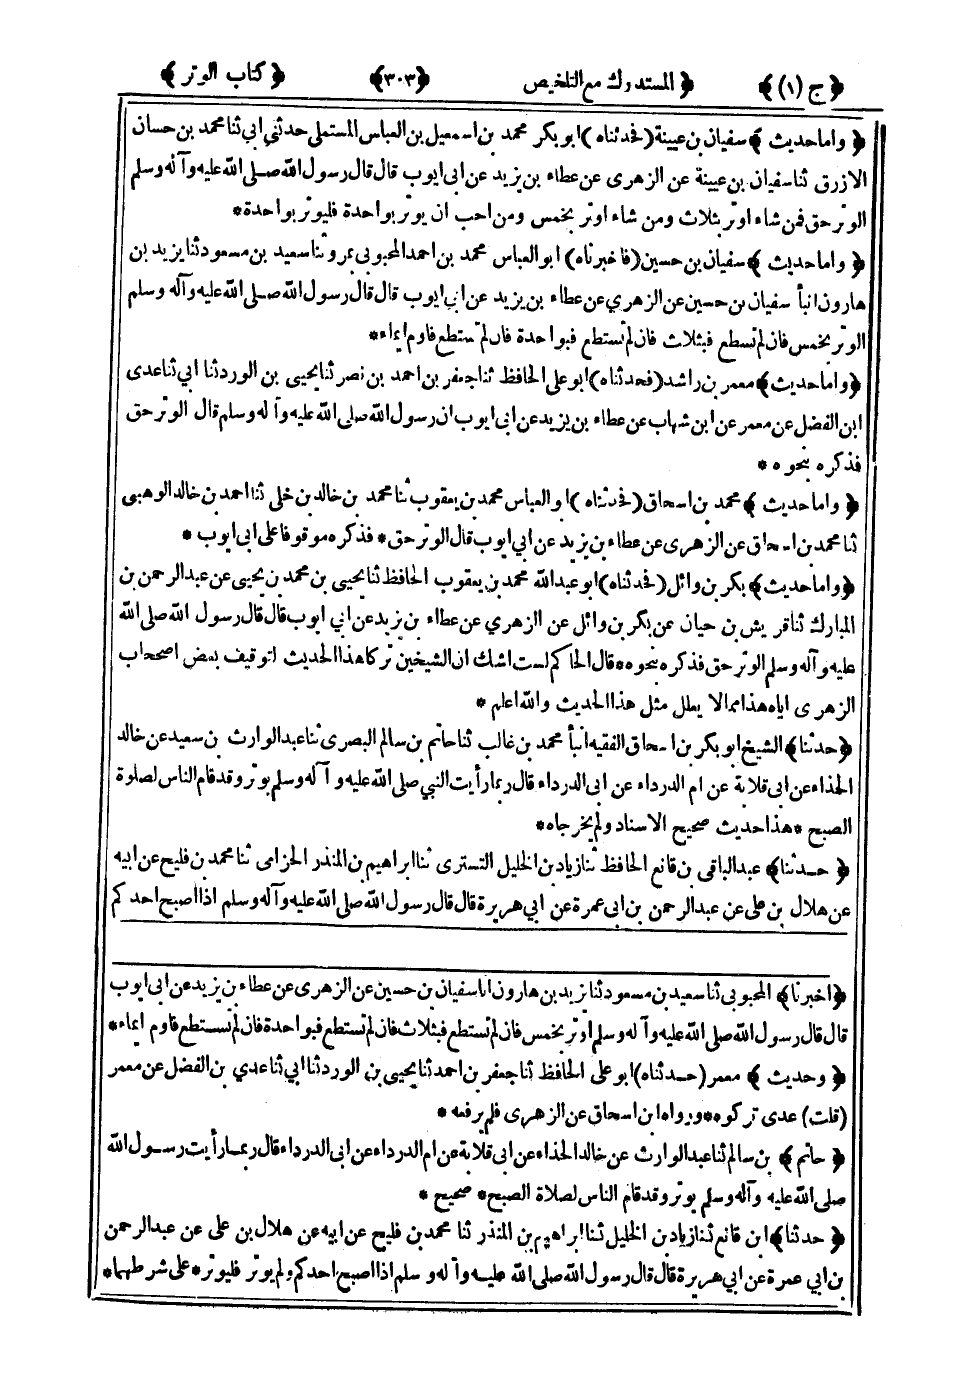 ﴿ ج (١) ﴾ ﴿ المستدرك مع التلخيص ﴿٣٠٣﴾ ﴿ كتاب الوتر ﴾
﴿ واما حديث ﴾ سفيان بن عيينة (فحدثناه) ابو بكر محمد بن اسمعيل بن العباس المستملى حدثنى ابى ثنا محمد بن حسان
الازرق ثنا سفيان بن عيينة عن الزهرى عن عطاء بن يزيد عن ابى ايوب قال قال رسول الله صلى الله عليه وآله وسلم
الوتر حق فمن شاء اوتر بثلاث ومن شاء اوتر بخمس ومن احب ان يوتر بواحدة فليوتر بواحدة*
﴿ واما حديث ﴾ سفيان بن حسين (فاخبرناه) ابو العباس محمد بن احمد المحبوبى بمرو ثنا سعيد بن مسعود ثنا يزيد بن
هارون انبأ سفيان بن حسين عن الزهري عن عطاء بن يزيد عن ابى ايوب قال قال رسول الله صلى الله عليه وآله وسلم
الوتر بخمس فان لم تسطع فبثلاث فان لم تستطع فبواحدة فان لم تستطع فاوم ايماء*
﴿واما حديث﴾ معمر بن راشد (فحدثناه) ابو على الحافظ ثنا جعفر بن احمد بن نصر ثنا يحيى بن الورد ثنا ابي ثنا عدى
ابن الفضل عن معمر عن ابن شهاب عن عطاء بن يزيد عن ابى ايوب ان رسول الله صلى الله عليه وآله وسلم قال الوتر حق
فذكره بنحوه *
﴿ واما حديث ﴾ محمد بن اسحاق (فحدثناه) ابو العباس محمد بن يعقوب ثنا محمد بن خالد بن خلى ثنا احمد بن خالد الوهبى
ثنا محمد بن اسحاق عن الزهرى عن عطاء بن يزيد عن ابي ايوب قال الوتر حق* فذكره موقوفا على ابى ايوب *
﴿واما حديث﴾ بكر بن وائل (فحدثناه) ابو عبد الله محمد بن يعقوب الحافظ ثنا يحيى بن محمد بن يحيى عن عبد الرحمن بن
المبارك ثنا قريش بن حيان عن بكر بن وائل عن الزهري عن عطاء بن يزيد عن ابي ايوب قال قال رسول الله صلى الله
عليه وآله وسلم الوتر حق فذكره بنحوه* قال الحاكم لست اشك ان الشيخين تركا هذا الحديث لتوقيف بعض اصحاب
الزهرى اياه هذا مما لا يعلل مثل هذا الحديث والله اعلم *
﴿حدثنا﴾ الشيخ ابو بكر بن اسحاق الفقيه انبأ محمد بن غالب ثنا حاتم بن سالم البصرى ثنا عبد الوارث بن سعيد عن خالد
الحذاء عن ابى قلابة عن ام الدرداء عن ابى الدرداء قال ربما رأيت النبي صلى الله عليه وآله وسلم يوتر وقد قام الناس لصلوة
الصبح *هذا حديث صحيح الاسناد ولم يخرجاه*
﴿ حدثنا﴾ عبد الباقى بن قانع الحافظ ثنا زياد بن الخليل التسترى ثنا ابراهيم بن المنذر الحزامى ثنا محمد بن فليح عن ابيه
عن هلال بن على عن عبد الرحمن بن ابى عمرة عن ابي هريرة قال قال رسول الله صلى الله عليه وآله وسلم اذا اصبح احدكم
﴿اخبرنا﴾ المحبوبى ثنا سعيد بن مسعود ثنا يزيد بن هارون انا سفيان بن حسين عن الزهرى عن عطاء بن يزيد عن ابى ايوب
قال قال رسول الله صلى الله عليه وآله وسلم اوتر بخمس فان لم تستطع فبثلاث فان لم تستطع فبواحدة فان لم تستطع فاوم ايماء*
﴿ وحديث ﴾ معمر (حدثناه) ابو على الحافظ ثنا جعفر بن احمد ثنا يحيى بن الورد ثنا ابي ثنا عدي بن الفضل عن معمر
(قلت) عدى تركوه* ورواه ابن اسحاق عن الزهرى فلم يرفعه *
﴿ حاتم ﴾ بن سالم ثنا عبد الوارث عن خالد الحذاء عن ابى قلابة عن ام الدرداء عن ابى الدرداء قال ربما رأيت رسول الله
صلى الله عليه وآله وسلم يوتر وقد قام الناس لصلاة الصبح* صحيح *
﴿ حدثنا﴾ ابن قانع ثنا زياد بن الخليل ثنا ابراهيم بن المنذر ثنا محمد بن فليح عن ابيه عن هلال بن على عن عبد الرحمن
بن ابي عمرة عن ابي هريرة قال قال رسول الله صلى الله عليه وآله وسلم اذا اصبح احدكم ولم يوتر فليوتر* على شرطهما*